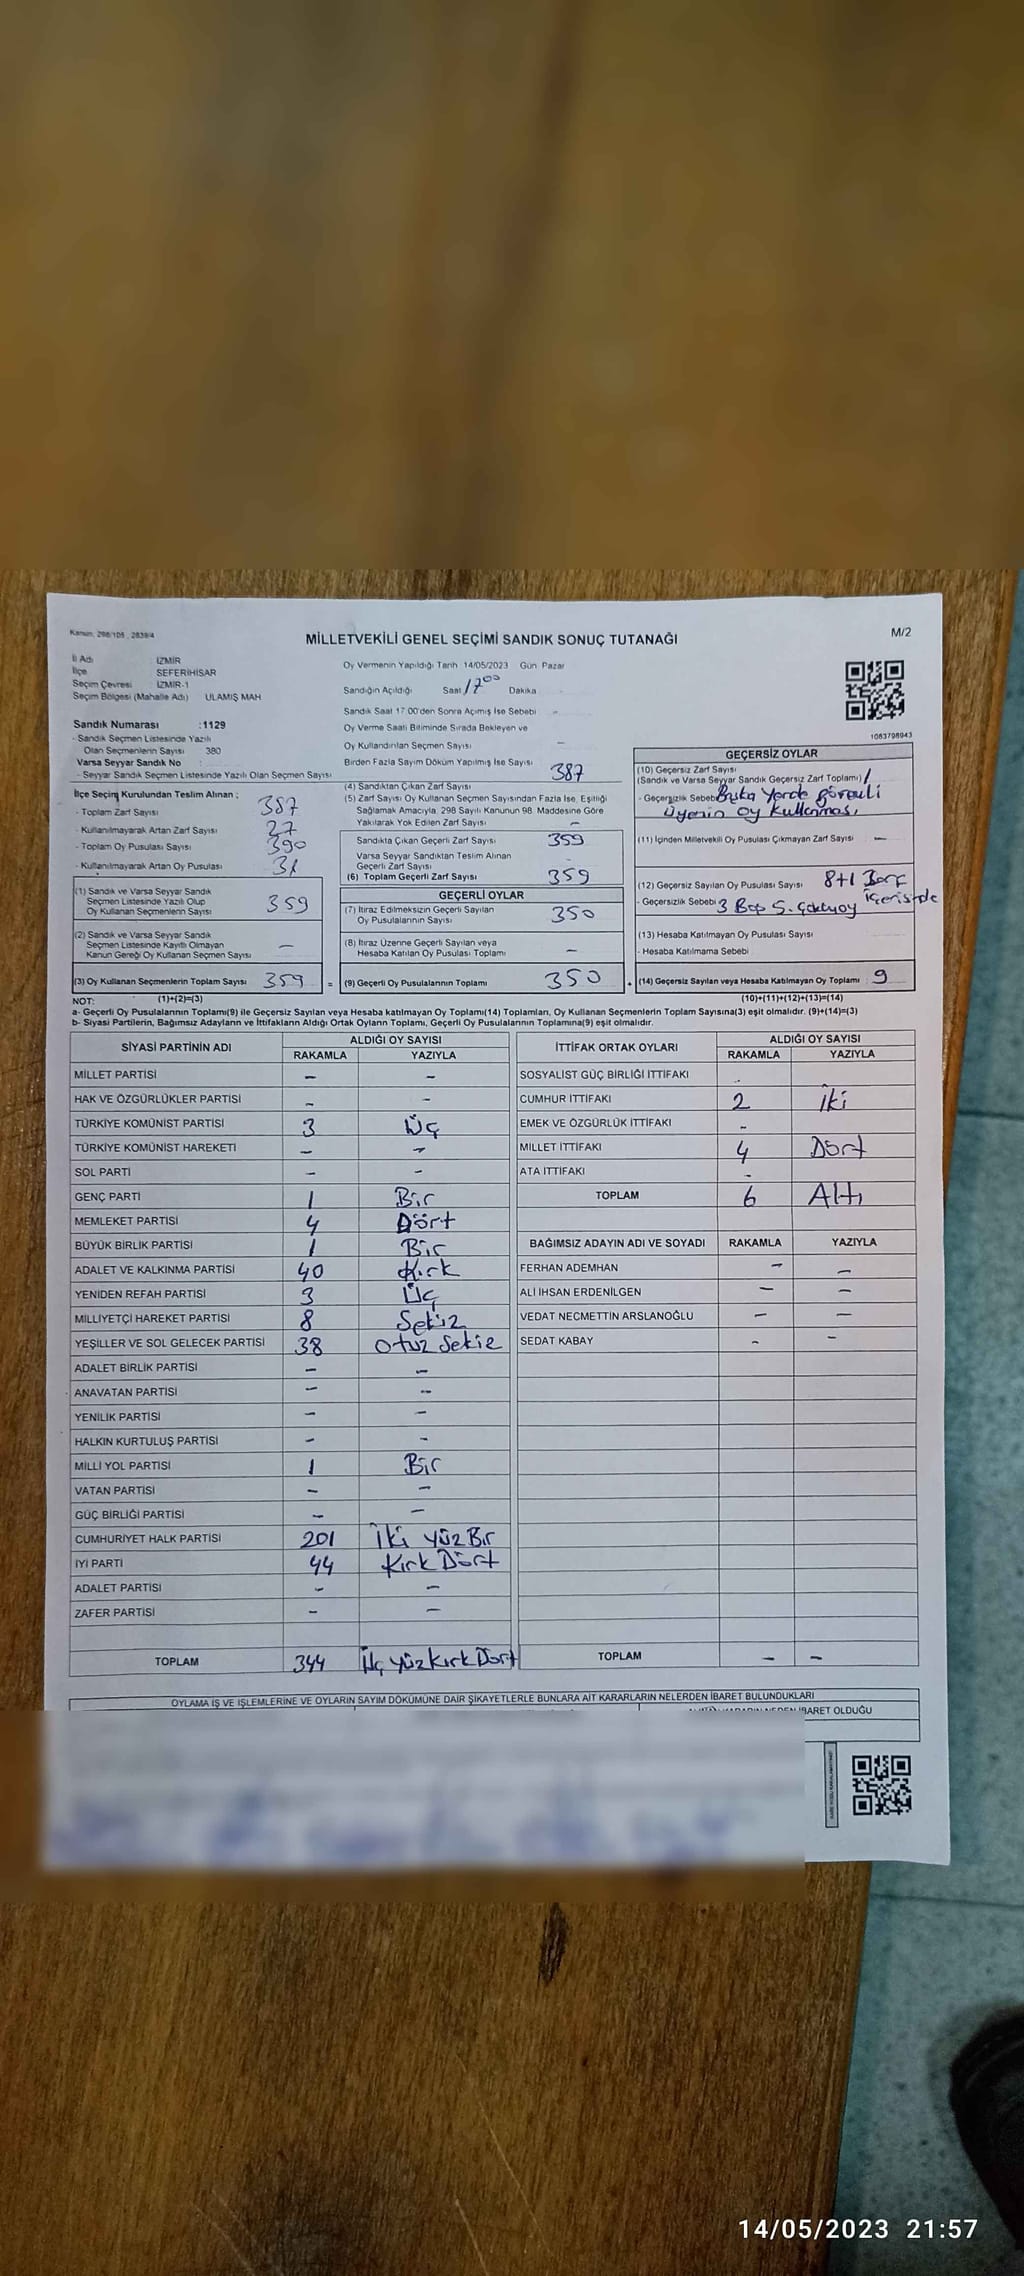 Kanun; 298/105 , 2839/4
MİLLETVEKİLİ GENEL SEÇİMİ SANDIK SONUÇ TUTANAĞI
M/2
İl Adı İZMİR
İlçe SEFERİHİSAR
Seçim Çevresi İZMİR-1
Seçim Bölgesi (Mahalle Adı) ULAMIŞ MAH
Sandık Numarası :1129
- Sandık Seçmen Listesinde Yazılı
Olan Seçmenlerin Sayısı 380
Varsa Seyyar Sandık No :
- Seyyar Sandık Seçmen Listesinde Yazılı Olan Seçmen Sayısı
Oy Vermenin Yapıldığı Tarih 14/05/2023 Gün Pazar
Sandığın Açıldığı Saat 17 00 Dakika
Sandık Saat 17:00'den Sonra Açılmış İse Sebebi -
Oy Verme Saati Bitiminde Sırada Bekleyen ve
Oy Kullandırılan Seçmen Sayısı -
Birden Fazla Sayım Döküm Yapılmış İse Sayısı
1083798943
İlçe Seçim Kurulundan Teslim Alınan ;
- Toplam Zarf Sayısı 387
- Kullanılmayarak Artan Zarf Sayısı 27
- Toplam Oy Pusulası Sayısı 390
- Kullanılmayarak Artan Oy Pusulası 31
(1) Sandık ve Varsa Seyyar Sandık
Seçmen Listesinde Yazılı Olup
Oy Kullanan Seçmenlerin Sayısı 359
(2) Sandık ve Varsa Seyyar Sandık
Seçmen Listesinde Kayıtlı Olmayan
Kanun Gereği Oy Kullanan Seçmen Sayısı -
(3) Oy Kullanan Seçmenlerin Toplam Sayısı 359 =
(4) Sandıktan Çıkan Zarf Sayısı 387
(5) Zarf Sayısı Oy Kullanan Seçmen Sayısından Fazla İse, Eşitliği
Sağlamak Amacıyla, 298 Sayılı Kanunun 98. Maddesine Göre
Yakılarak Yok Edilen Zarf Sayısı -
Sandıkta Çıkan Geçerli Zarf Sayısı 359
Varsa Seyyar Sandıktan Teslim Alınan
Geçerli Zarf Sayısı -
(6) Toplam Geçerli Zarf Sayısı 359
GEÇERLİ OYLAR
(7) İtiraz Edilmeksizin Geçerli Sayılan
Oy Pusulalarının Sayısı 350
(8) İtiraz Üzerine Geçerli Sayılan veya
Hesaba Katılan Oy Pusulası Toplamı -
(9) Geçerli Oy Pusulalarının Toplamı 350 +
GEÇERSİZ OYLAR
(10) Geçersiz Zarf Sayısı
(Sandık ve Varsa Seyyar Sandık Geçersiz Zarf Toplamı) 1
- Geçersizlik Sebebi Başka yerde görevli
üyenin oy kullanması
(11) İçinden Milletvekili Oy Pusulası Çıkmayan Zarf Sayısı -
(12) Geçersiz Sayılan Oy Pusulası Sayısı 8+1
- Geçersizlik Sebebi 3 içerisinde
(13) Hesaba Katılmayan Oy Pusulası Sayısı
- Hesaba Katılmama Sebebi
(14) Geçersiz Sayılan veya Hesaba Katılmayan Oy Toplamı 9
NOT: (1)+(2)=(3) (10)+(11)+(12)+(13)=(14)
a- Geçerli Oy Pusulalarının Toplamı(9) ile Geçersiz Sayılan veya Hesaba katılmayan Oy Toplamı(14) Toplamları, Oy Kullanan Seçmenlerin Toplam Sayısına(3) eşit olmalıdır. (9)+(14)=(3)
b- Siyasi Partilerin, Bağımsız Adayların ve İttifakların Aldığı Ortak Oyların Toplamı, Geçerli Oy Pusulalarının Toplamına(9) eşit olmalıdır.
SİYASİ PARTİNİN ADI ALDIĞI OY SAYISI
RAKAMLA YAZIYLA
MİLLET PARTİSİ - -
HAK VE ÖZGÜRLÜKLER PARTİSİ - -
TÜRKİYE KOMÜNİST PARTİSİ 3 Üç
TÜRKİYE KOMÜNİST HAREKETİ - -
SOL PARTİ - -
GENÇ PARTİ 1 Bir
MEMLEKET PARTİSİ 4 Dört
BÜYÜK BİRLİK PARTİSİ 1 Bir
ADALET VE KALKINMA PARTİSİ 40 Kırk
YENİDEN REFAH PARTİSİ 3 Üç
MİLLİYETÇİ HAREKET PARTİSİ 8 Sekiz
YEŞİLLER VE SOL GELECEK PARTİSİ 38 Otuz Sekiz
ADALET BİRLİK PARTİSİ - -
ANAVATAN PARTİSİ - --
YENİLİK PARTİSİ - -
HALKIN KURTULUŞ PARTİSİ - -
MİLLİ YOL PARTİSİ 1 Bir
VATAN PARTİSİ - -
GÜÇ BİRLİĞİ PARTİSİ - -
CUMHURİYET HALK PARTİSİ 201 İki yüz Bir
İYİ PARTİ 44 Kırk Dört
ADALET PARTİSİ - -
ZAFER PARTİSİ - -
TOPLAM 344 Üç yüz Kırk Dört
İTTİFAK ORTAK OYLARI ALDIĞI OY SAYISI
RAKAMLA YAZIYLA
SOSYALİST GÜÇ BİRLİĞİ İTTİFAKI -
CUMHUR İTTİFAKI 2 İki
EMEK VE ÖZGÜRLÜK İTTİFAKI -
MİLLET İTTİFAKI 4 Dört
ATA İTTİFAKI -
TOPLAM 6 Altı
BAĞIMSIZ ADAYIN ADI VE SOYADI RAKAMLA YAZIYLA
FERHAN ADEMHAN - -
ALİ İHSAN ERDENİLGEN - -
VEDAT NECMETTİN ARSLANOĞLU - -
SEDAT KABAY - -
TOPLAM - -
OYLAMA İŞ VE İŞLEMLERİNE VE OYLARIN SAYIM DÖKÜMÜNE DAİR ŞİKAYETLERLE BUNLARA AİT KARARLARIN NELERDEN İBARET BULUNDUKLARI
İBARET OLDUĞU
14/05/2023 21:57